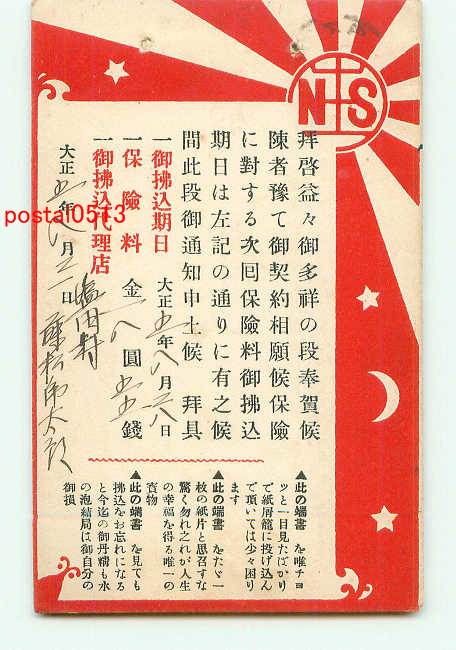 N S
拝啓益々御多祥の段奉賀候
陳者豫て御契約相願候保險
に對する次囘保險料御拂込
期日は左記の通りに有之候
間此段御通知申上候 拜具
一御拂込期日 大正五年八月六日
一保險料 金 八圓 錢
一御拂込代理店
大正五年八月 日
塩田村
藤松 太郎
▲此の端書 を唯チヨ
ッと一目見たばかり
で紙屑籠に投げ込ん
で頂いては少々困り
ます
▲此の端書 をたゞ一
枚の紙片と思召すな
驚く勿れこれが人生
の幸福を得る唯一の
寳物
▲此の端書 を見ても
拂込をお忘れになる
と今迄の御丹精も水
の泡結局は御自分の
御損
postal0513